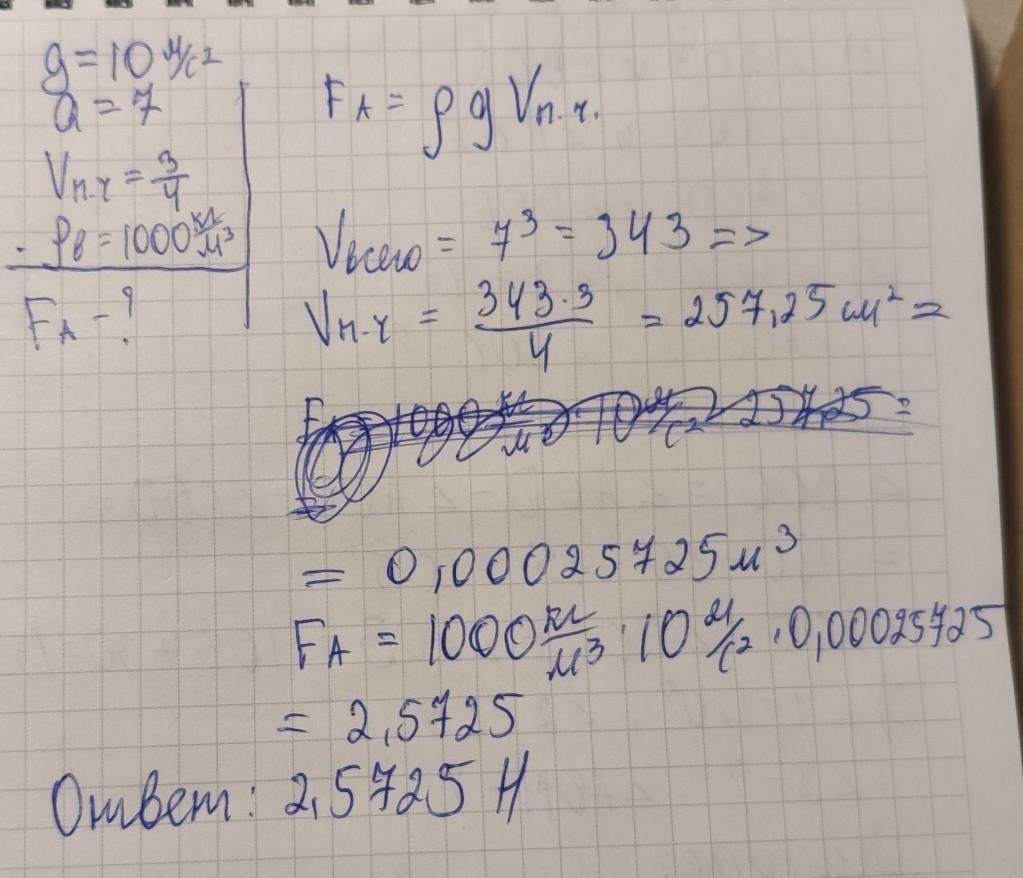 g = 10 м/с²
a = 7
Vп.ч = 3/4
ρв = 1000 кг/м³
FA - ?
FA = ρ g Vп.ч.
Vвсего = 7³ = 343 =>
Vп.ч = 343·3/4 = 257,25 см² =
1000 кг/м³ · 10 м/с² 257,25 =
= 0,00025725 м³
FA = 1000 кг/м³ · 10 м/с² · 0,00025725
= 2,5725
Ответ: 2,5725 Н